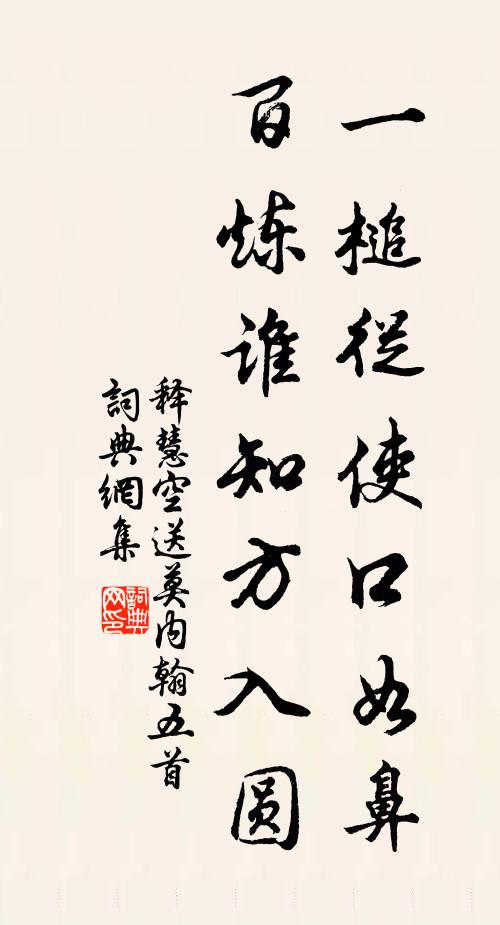 一槌從使口如鼻
百炼谁知方入圆
释慧空送莫内翰五首
詞典網集
詞典网印